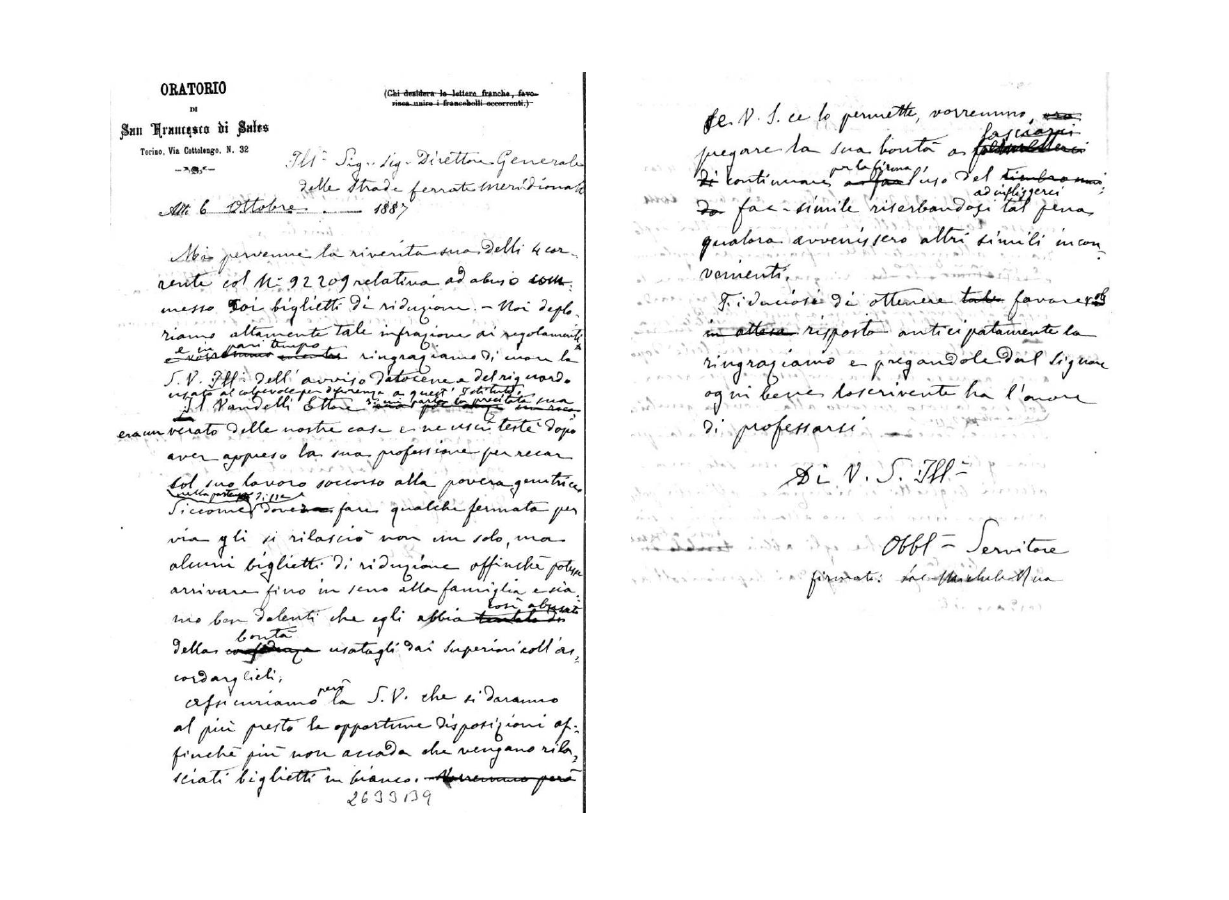 ORATORIO
DI
San Francesco di Sales
Torino, Via Cottolengo, N. 32
(Chi desidera le lettere franche, favo-
risca unire i francobolli occorrenti.)
Ill. Sig. Sig. Direttore Generale
delle Strade ferrate Meridionali
Alli 6 Ottobre 1887
Mi pervenne la riverita sua delli 4 cor-
rente col N. 92209 relativa ad abuso com-
messo coi biglietti di riduzione. - Noi deplo-
riamo altamente tale infrazione ai regolamenti
e in pari tempo
ringraziamo di cuore la
S. V. Ill. dell'avviso datocene e del riguardo
usato al colpevole per deferenza a quest'Istituto.
Il Vandelli Ettore
era un verato delle nostre case e ne uscì testè dopo
aver appreso la sua professione per recar
col suo lavoro soccorso alla povera genitrice
nella partenza disse
Siccome dover fare qualche fermata per
via gli si rilasciò non un solo, ma
alcuni biglietti di riduzione affinchè potesse
arrivare fino in seno alla famiglia e sia-
così abusato
mo ben dolenti che egli abbia tentato di
bontà
della confidenza usatagli dai Superiori coll'ac-
cordarglieli;
però
Assicuriamo la S. V. che si daranno
al più presto le opportune disposizioni af-
finchè più non accada che vengano rila-
sciati biglietti in bianco. Vorremmo però
2633 B9
Se V. S. ce lo permette, vorremmo,
lasciarci
pregare la sua bontà a
per la firma
di continuare l'uso del timbro mu-
ad infliggerci
do fac-simile riserbandosi tal pena
qualora avvenissero altri simili incon-
venienti.
Fiduciosi di ottenere tale favore
in attesa risposta anticipatamente la
ringraziamo e pregandole dal Signore
ogni bene loscrivente ha l'onore
di professarsi
Di V. S. Ill
Obbl Servitore
firmato: Sac. Michele Rua